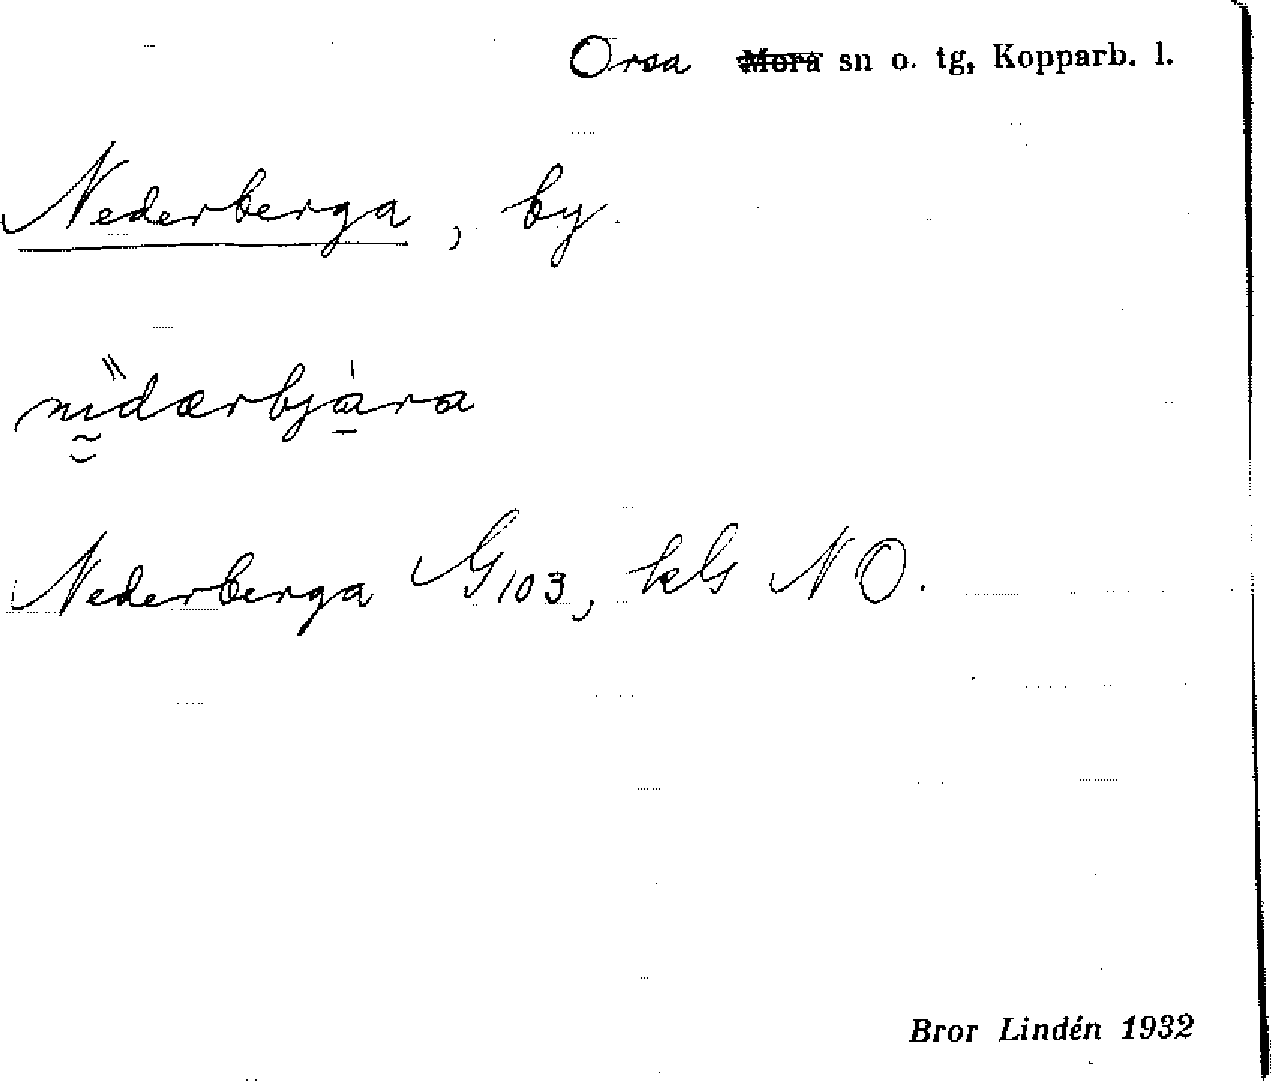 Orsa Mora sn o. tg, Kopparb. l.
Nederberga, by.
nidærbjàra
Nederberga G103, kbl NO.
Bror Lindén 1932